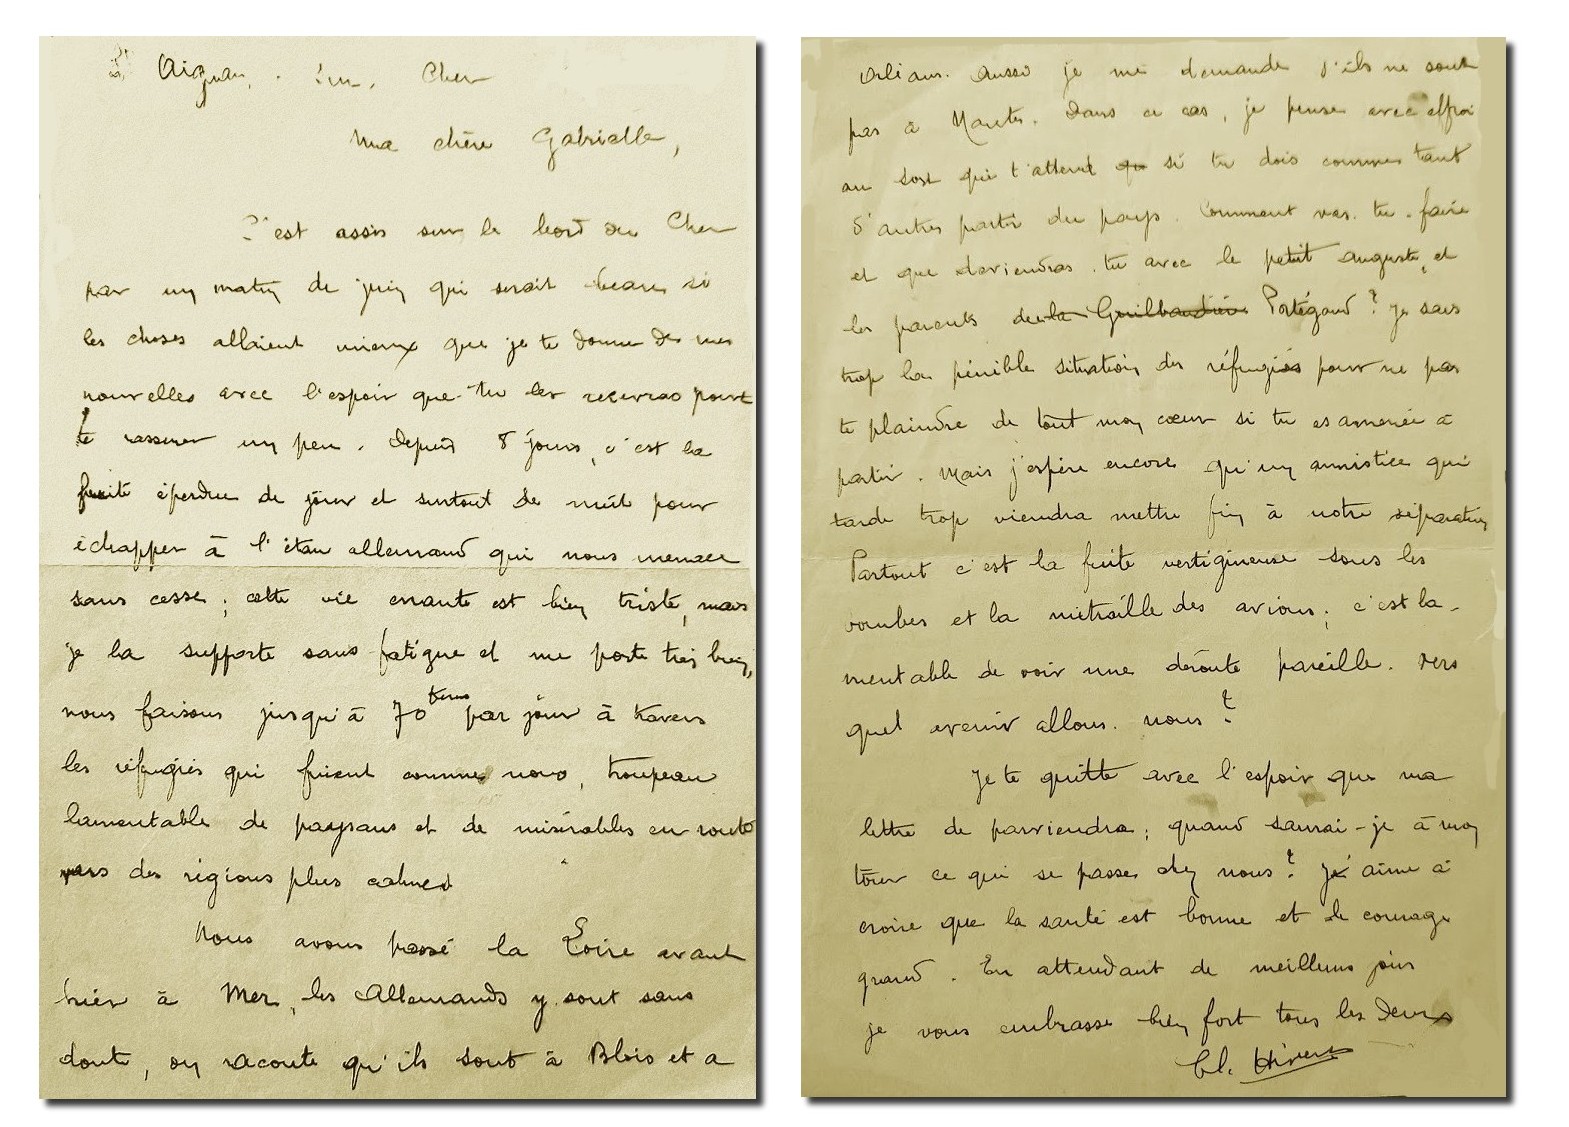 St Aignan. Sur. Cher
Ma chère Gabrielle,
C'est assis sur le bord du Cher
par un matin de juin qui serait beau si
les choses allaient mieux que je te donne de mes
nouvelles avec l'espoir que tu les recevras pour
te rassurer un peu. Depuis 8 jours, c'est la
fuite éperdue de jour et surtout de nuit pour
échapper à l'étau allemand qui nous menace
sans cesse ; cette vie errante est bien triste, mais
je la supporte sans fatigue et me porte très bien,
nous faisons jusqu'à 70 kms par jour à travers
les réfugiés qui fuient comme nous, troupeau
lamentable de paysans et de misérables en route
vers des régions plus calmes
Nous avons passé la Loire avant
hier à Mer, les Allemands y sont sans
doute, on raconte qu'ils sont à Blois et a
Orléans. Aussi je me demande s'ils ne sont
pas à Nantes. Dans ce cas, je pense avec effroi
au sort qui t'attend qu si tu dois comme tant
d'autres partir du pays. Comment vas-tu-faire
et que deviendras-tu avec le petit Auguste, et
les parents de la Guilbaudière Portégaud ? Je sais
trop la pénible situation des réfugiés pour ne pas
te plaindre de tout mon cœur si tu es amenée à
partir. Mais j'espère encore qu'un armistice qui
tarde trop viendra mettre fin à notre séparation
Partout c'est la fuite vertigineuse sous les
bombes et la mitraille des avions ; c'est la-
mentable de voir une déroute pareille. Vers
quel avenir allons-nous ?
Je te quitte avec l'espoir que ma
lettre te parviendra ; quand saurai-je à mon
tour ce qui se passe chez nous ? J'aime à
croire que la santé est bonne et le courage
grand. En attendant de meilleurs jours
je vous embrasse bien fort tous les deux
Cl.